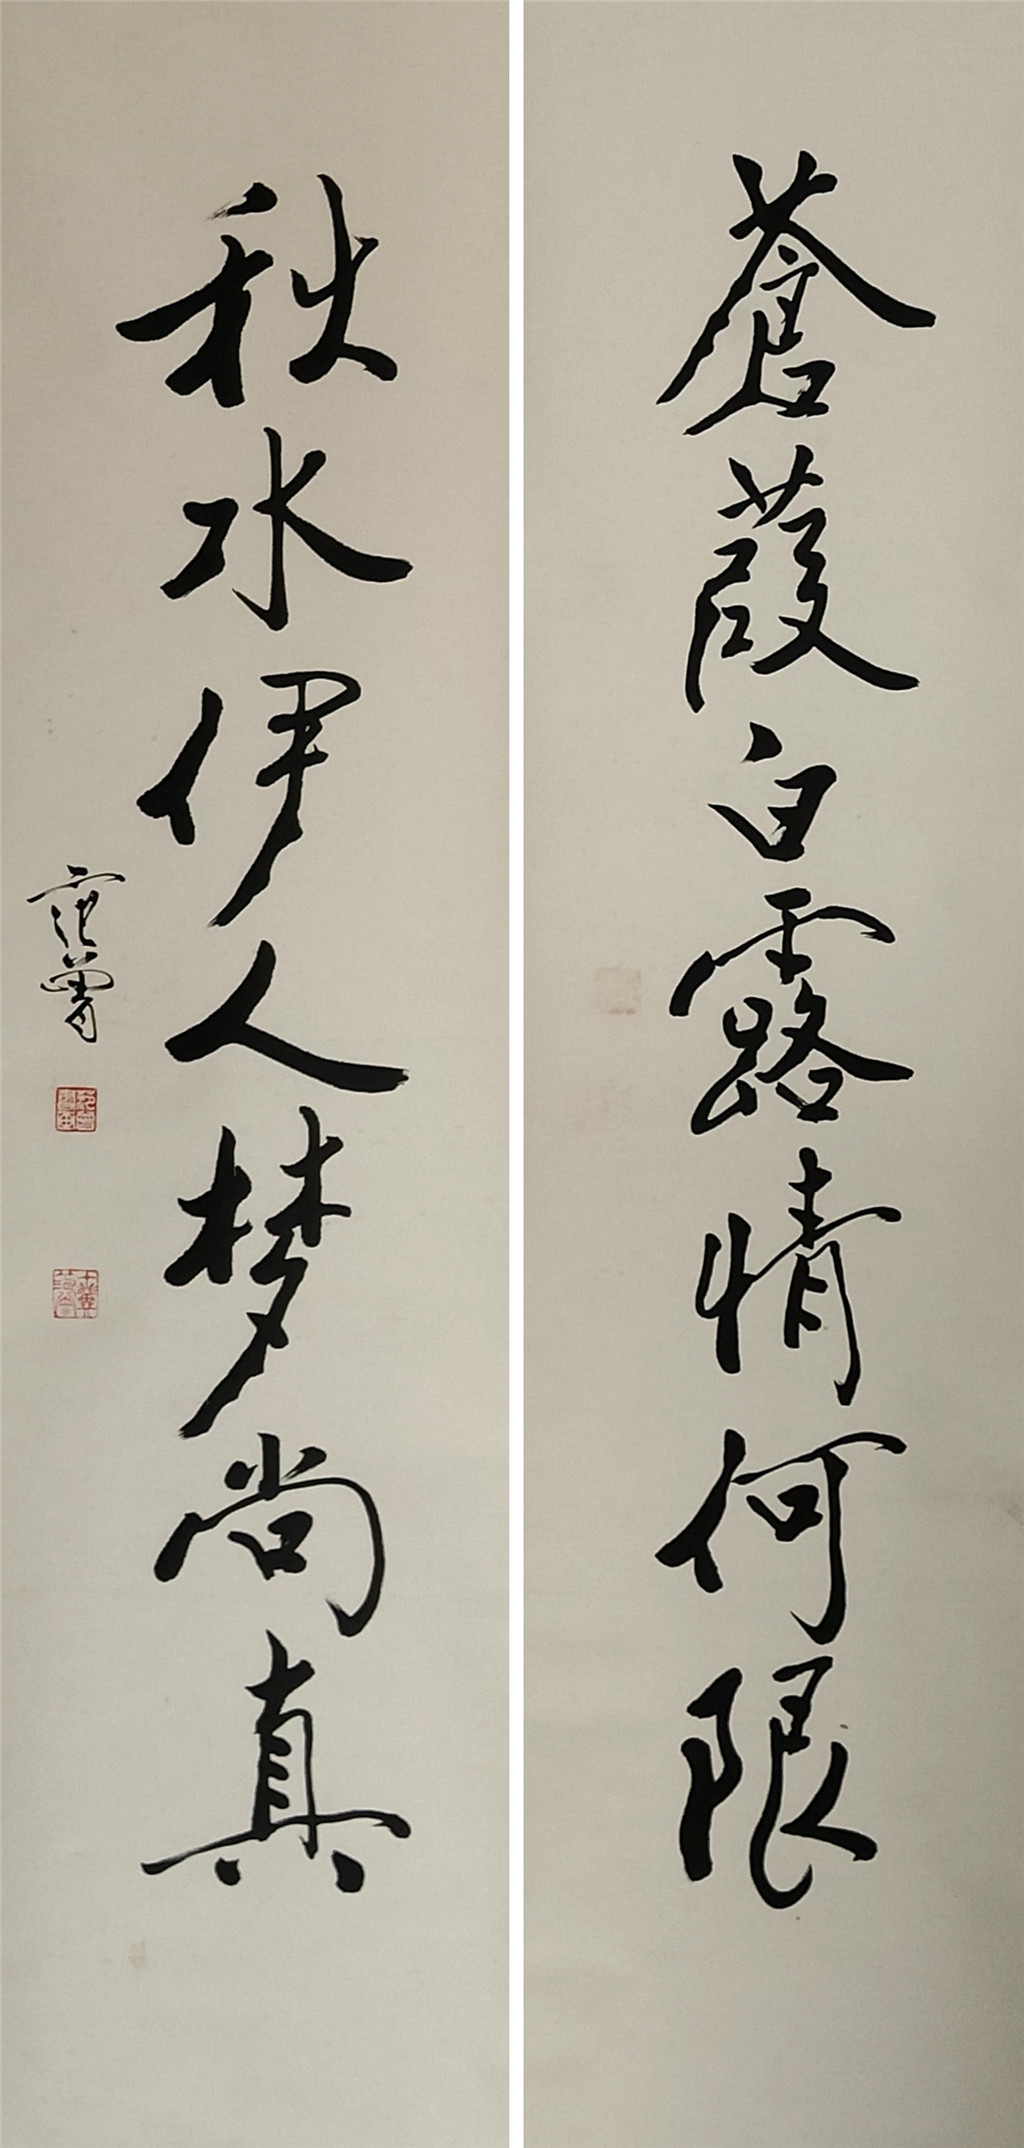 蒼葭白露情何限
秋水伊人梦尚真
范曾